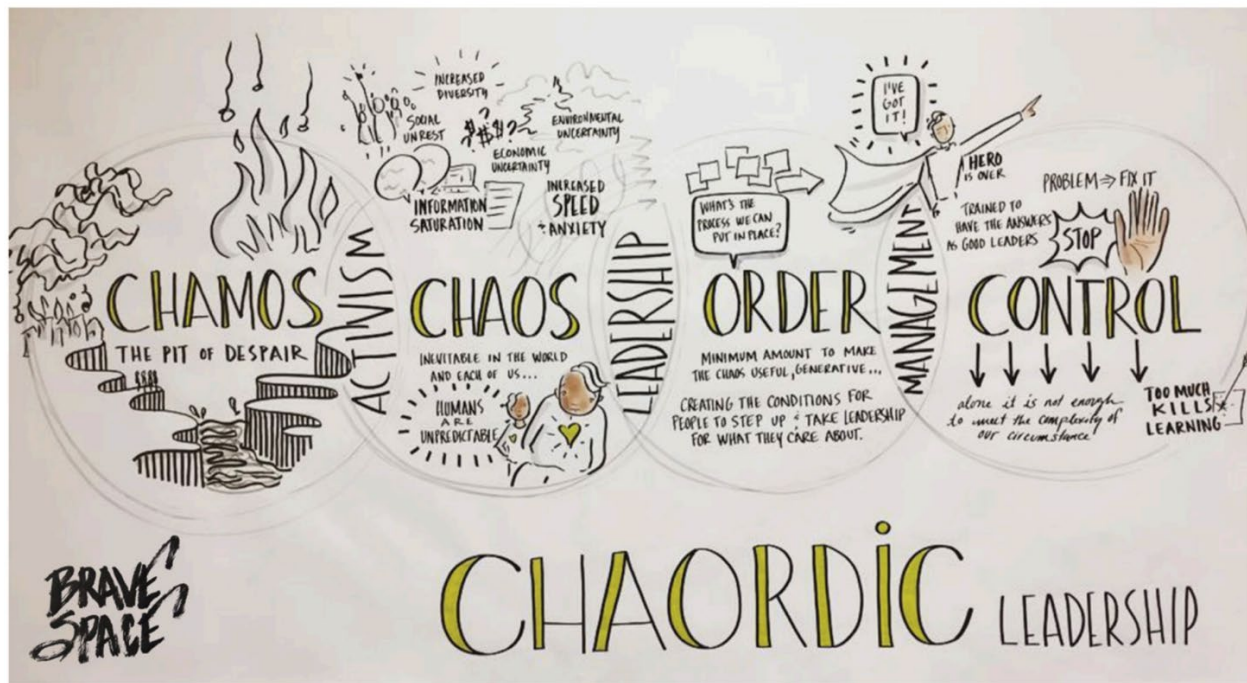 CHAMOS
THE PIT OF DESPAIR
ACTIVISM
INCREASED
DIVERSITY
SOCIAL
UNREST
$#$!?
ENVIRONMENTAL
UNCERTAINTY
ECONOMIC
UNCERTAINTY
INFORMATION
SATURATION
INCREASED
SPEED
+ ANXIETY
CHAOS
INEVITABLE IN THE WORLD
AND EACH OF US...
HUMANS
ARE
UNPREDICTABLE
LEADERSHIP
WHAT'S THE
PROCESS WE CAN
PUT IN PLACE?
ORDER
MINIMUM AMOUNT TO MAKE
THE CHAOS USEFUL, GENERATIVE...
CREATING THE CONDITIONS FOR
PEOPLE TO STEP UP & TAKE LEADERSHIP
FOR WHAT THEY CARE ABOUT.
MANAGEMENT
I'VE
GOT
IT!
HERO
IS OVER
TRAINED TO
HAVE THE ANSWERS
AS GOOD LEADERS
PROBLEM ⇒ FIX IT
STOP
CONTROL
alone it is not enough
to meet the complexity of
our circumstance
TOO MUCH
KILLS
LEARNING
BRAVE
SPACE
CHAORDIC LEADERSHIP